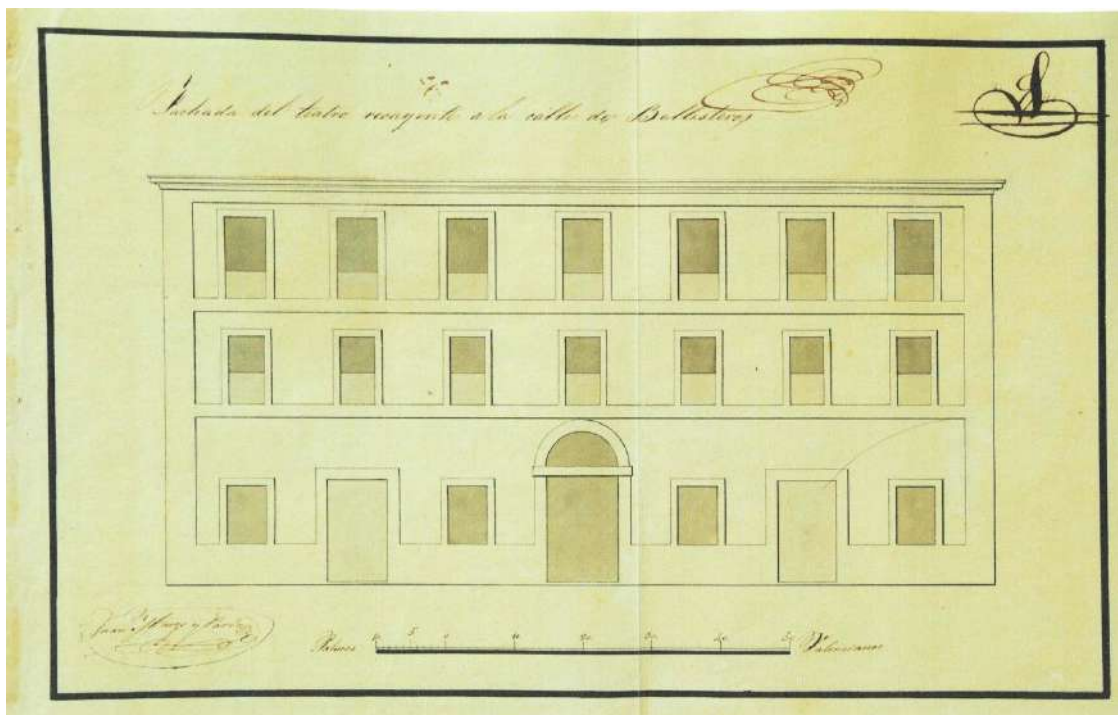 Fachada del teatro recayente a la calle de Ballesteros
Juan Marzo y Pardo
Palmos 10 5 0 10 20 30 40 50 Valencianos